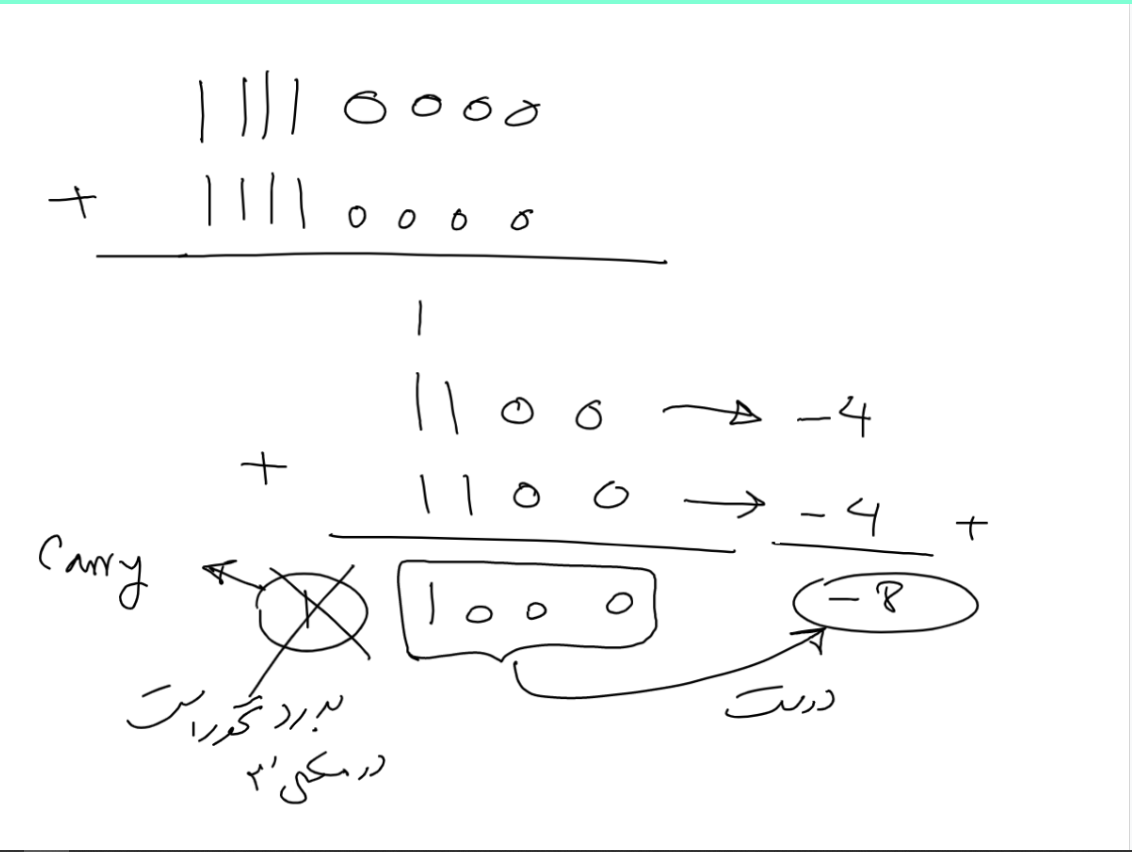 1111 0000
+ 1111 0000
1
1100 → -4
+ 1100 → -4 +
Carry 1 1000 -8
درست
در مکمل ۲'